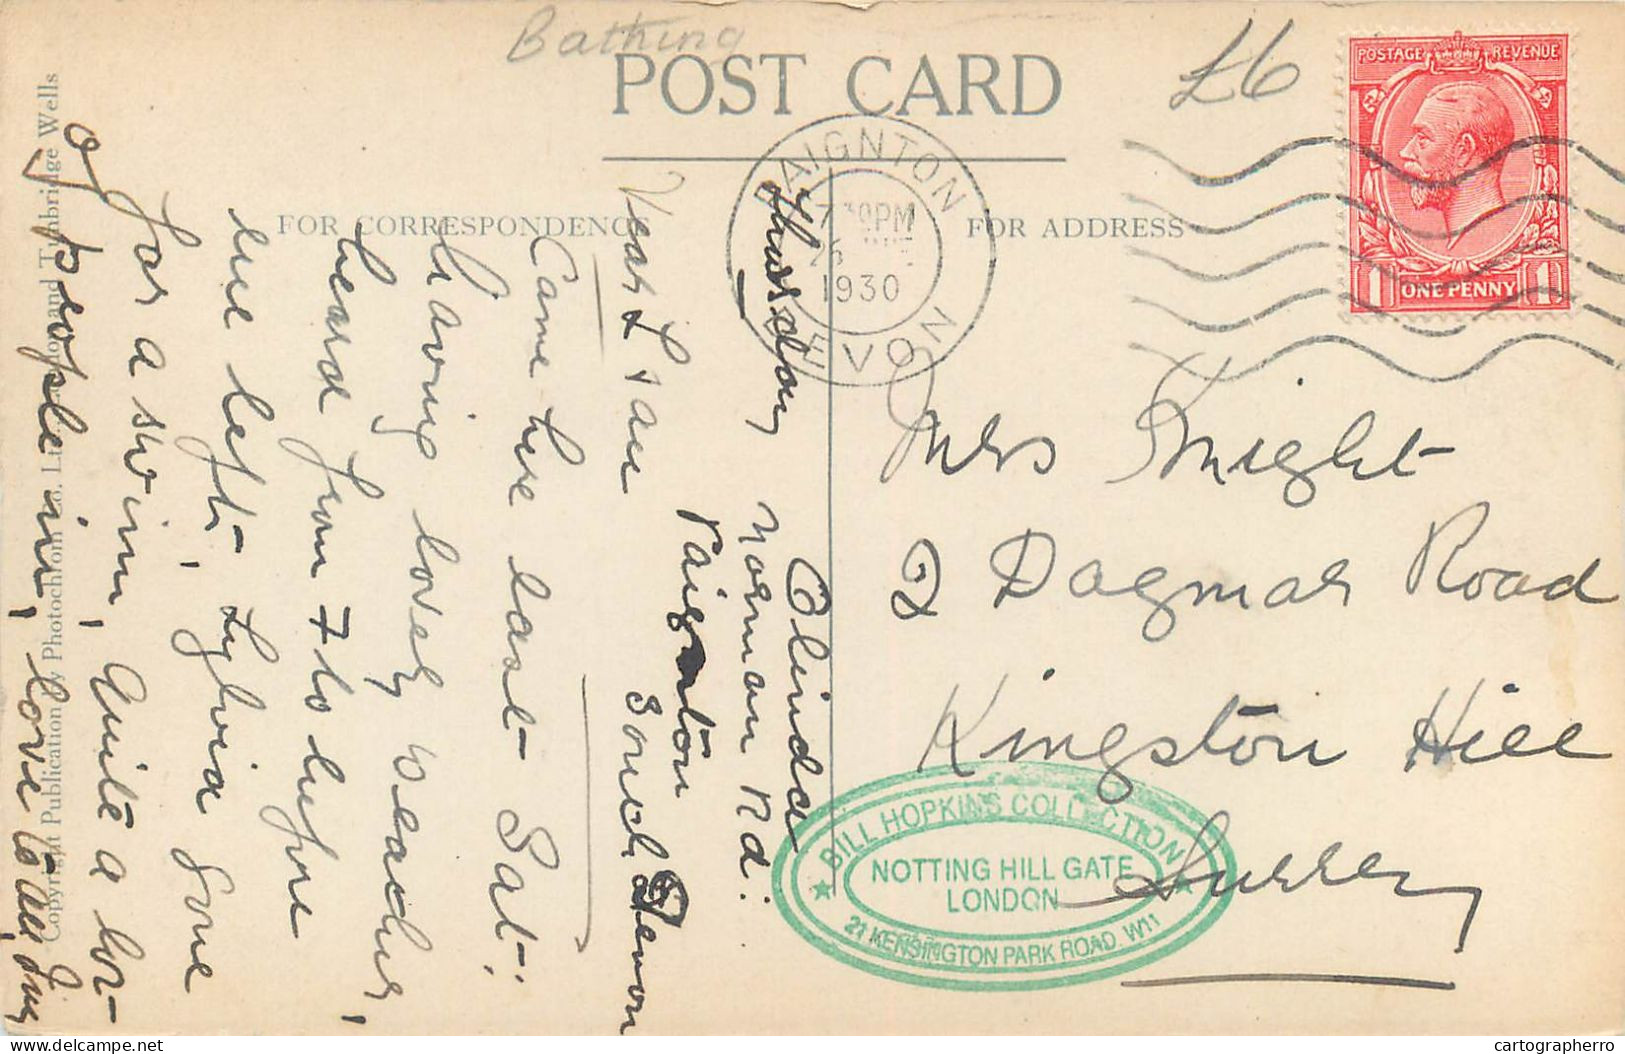 Bathing
POST CARD
£6
POSTAGE REVENUE
1 ONE PENNY 1
PAIGNTON
7 30PM
1930
DEVON
FOR CORRESPONDENCE
FOR ADDRESS
Thursday
Olinda
Norman Rd.
Paignton
South Devon
Dear L & all
Came here last Sat:
having lovely weather,
heard from F to before
we left, Sylvia gone
for a swim, quite a lot
of people in, love to all
Mrs Knight
2 Dagmar Road
Kingston Hill
Surrey
BILL HOPKINS COLLECTION
NOTTING HILL GATE
LONDON
21 KENSINGTON PARK ROAD. W11
Copyright Publication by Photochrom Co. Ltd. London and Tunbridge Wells
delcampe.net
cartographerro